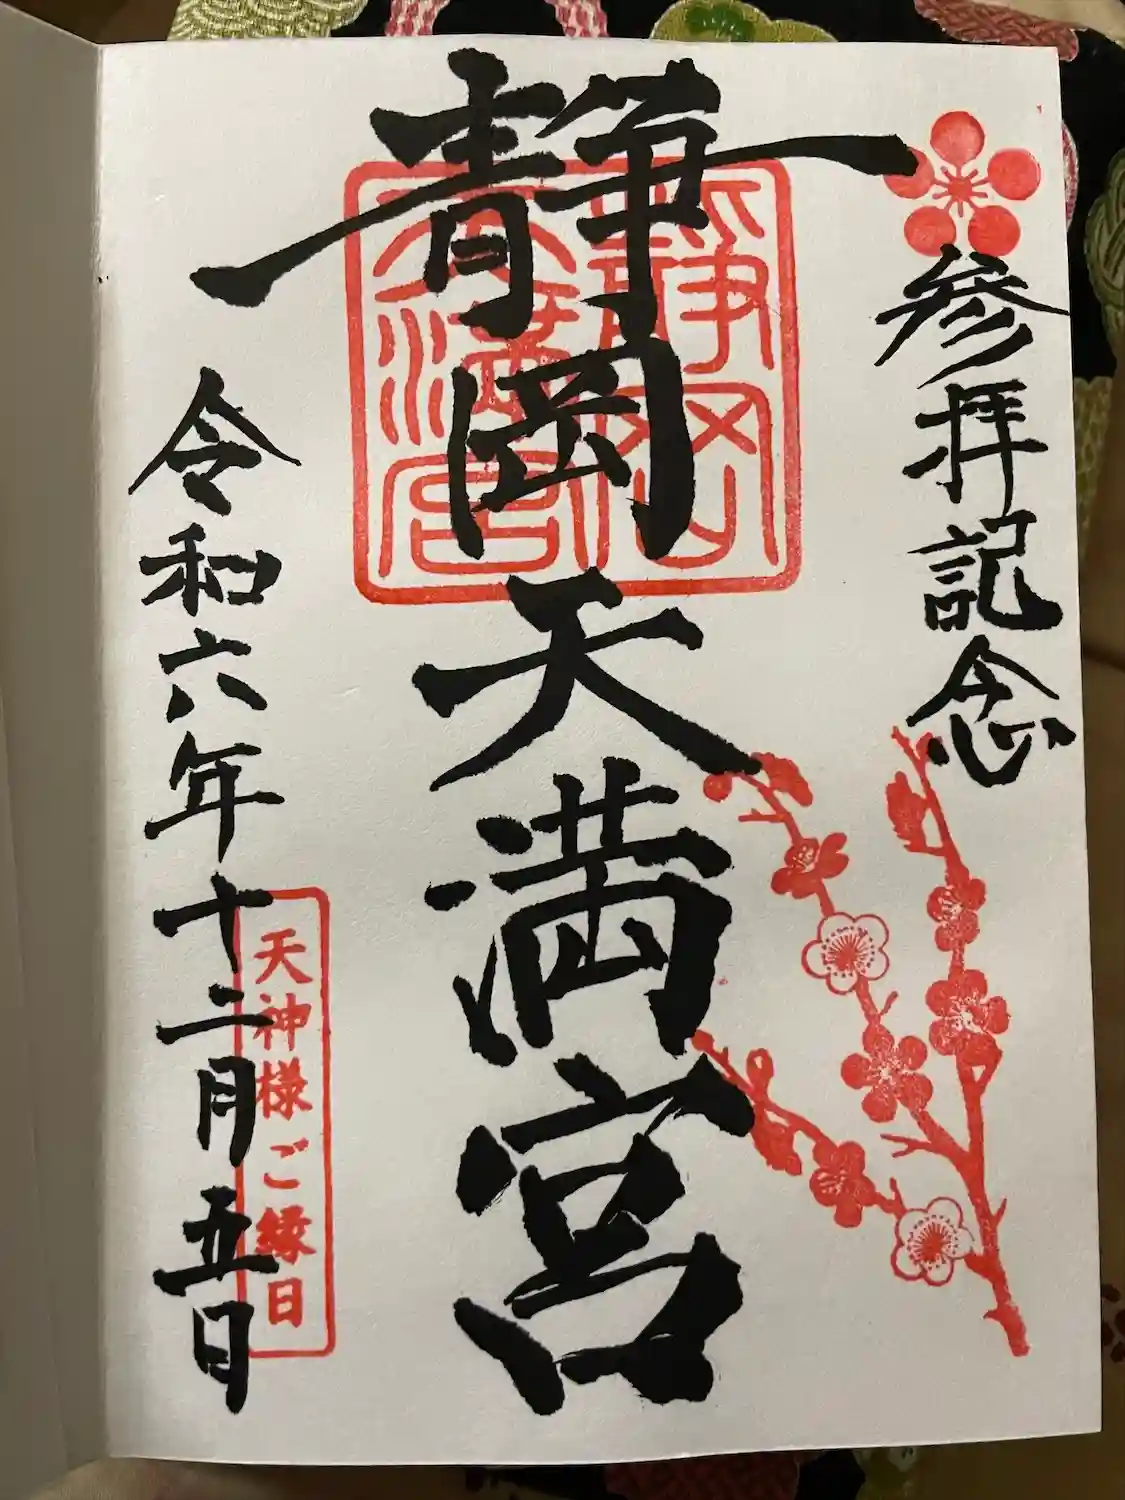 参拝記念
静岡天満宮
静岡天満宮
令和六年十二月五日
天神様ご縁日